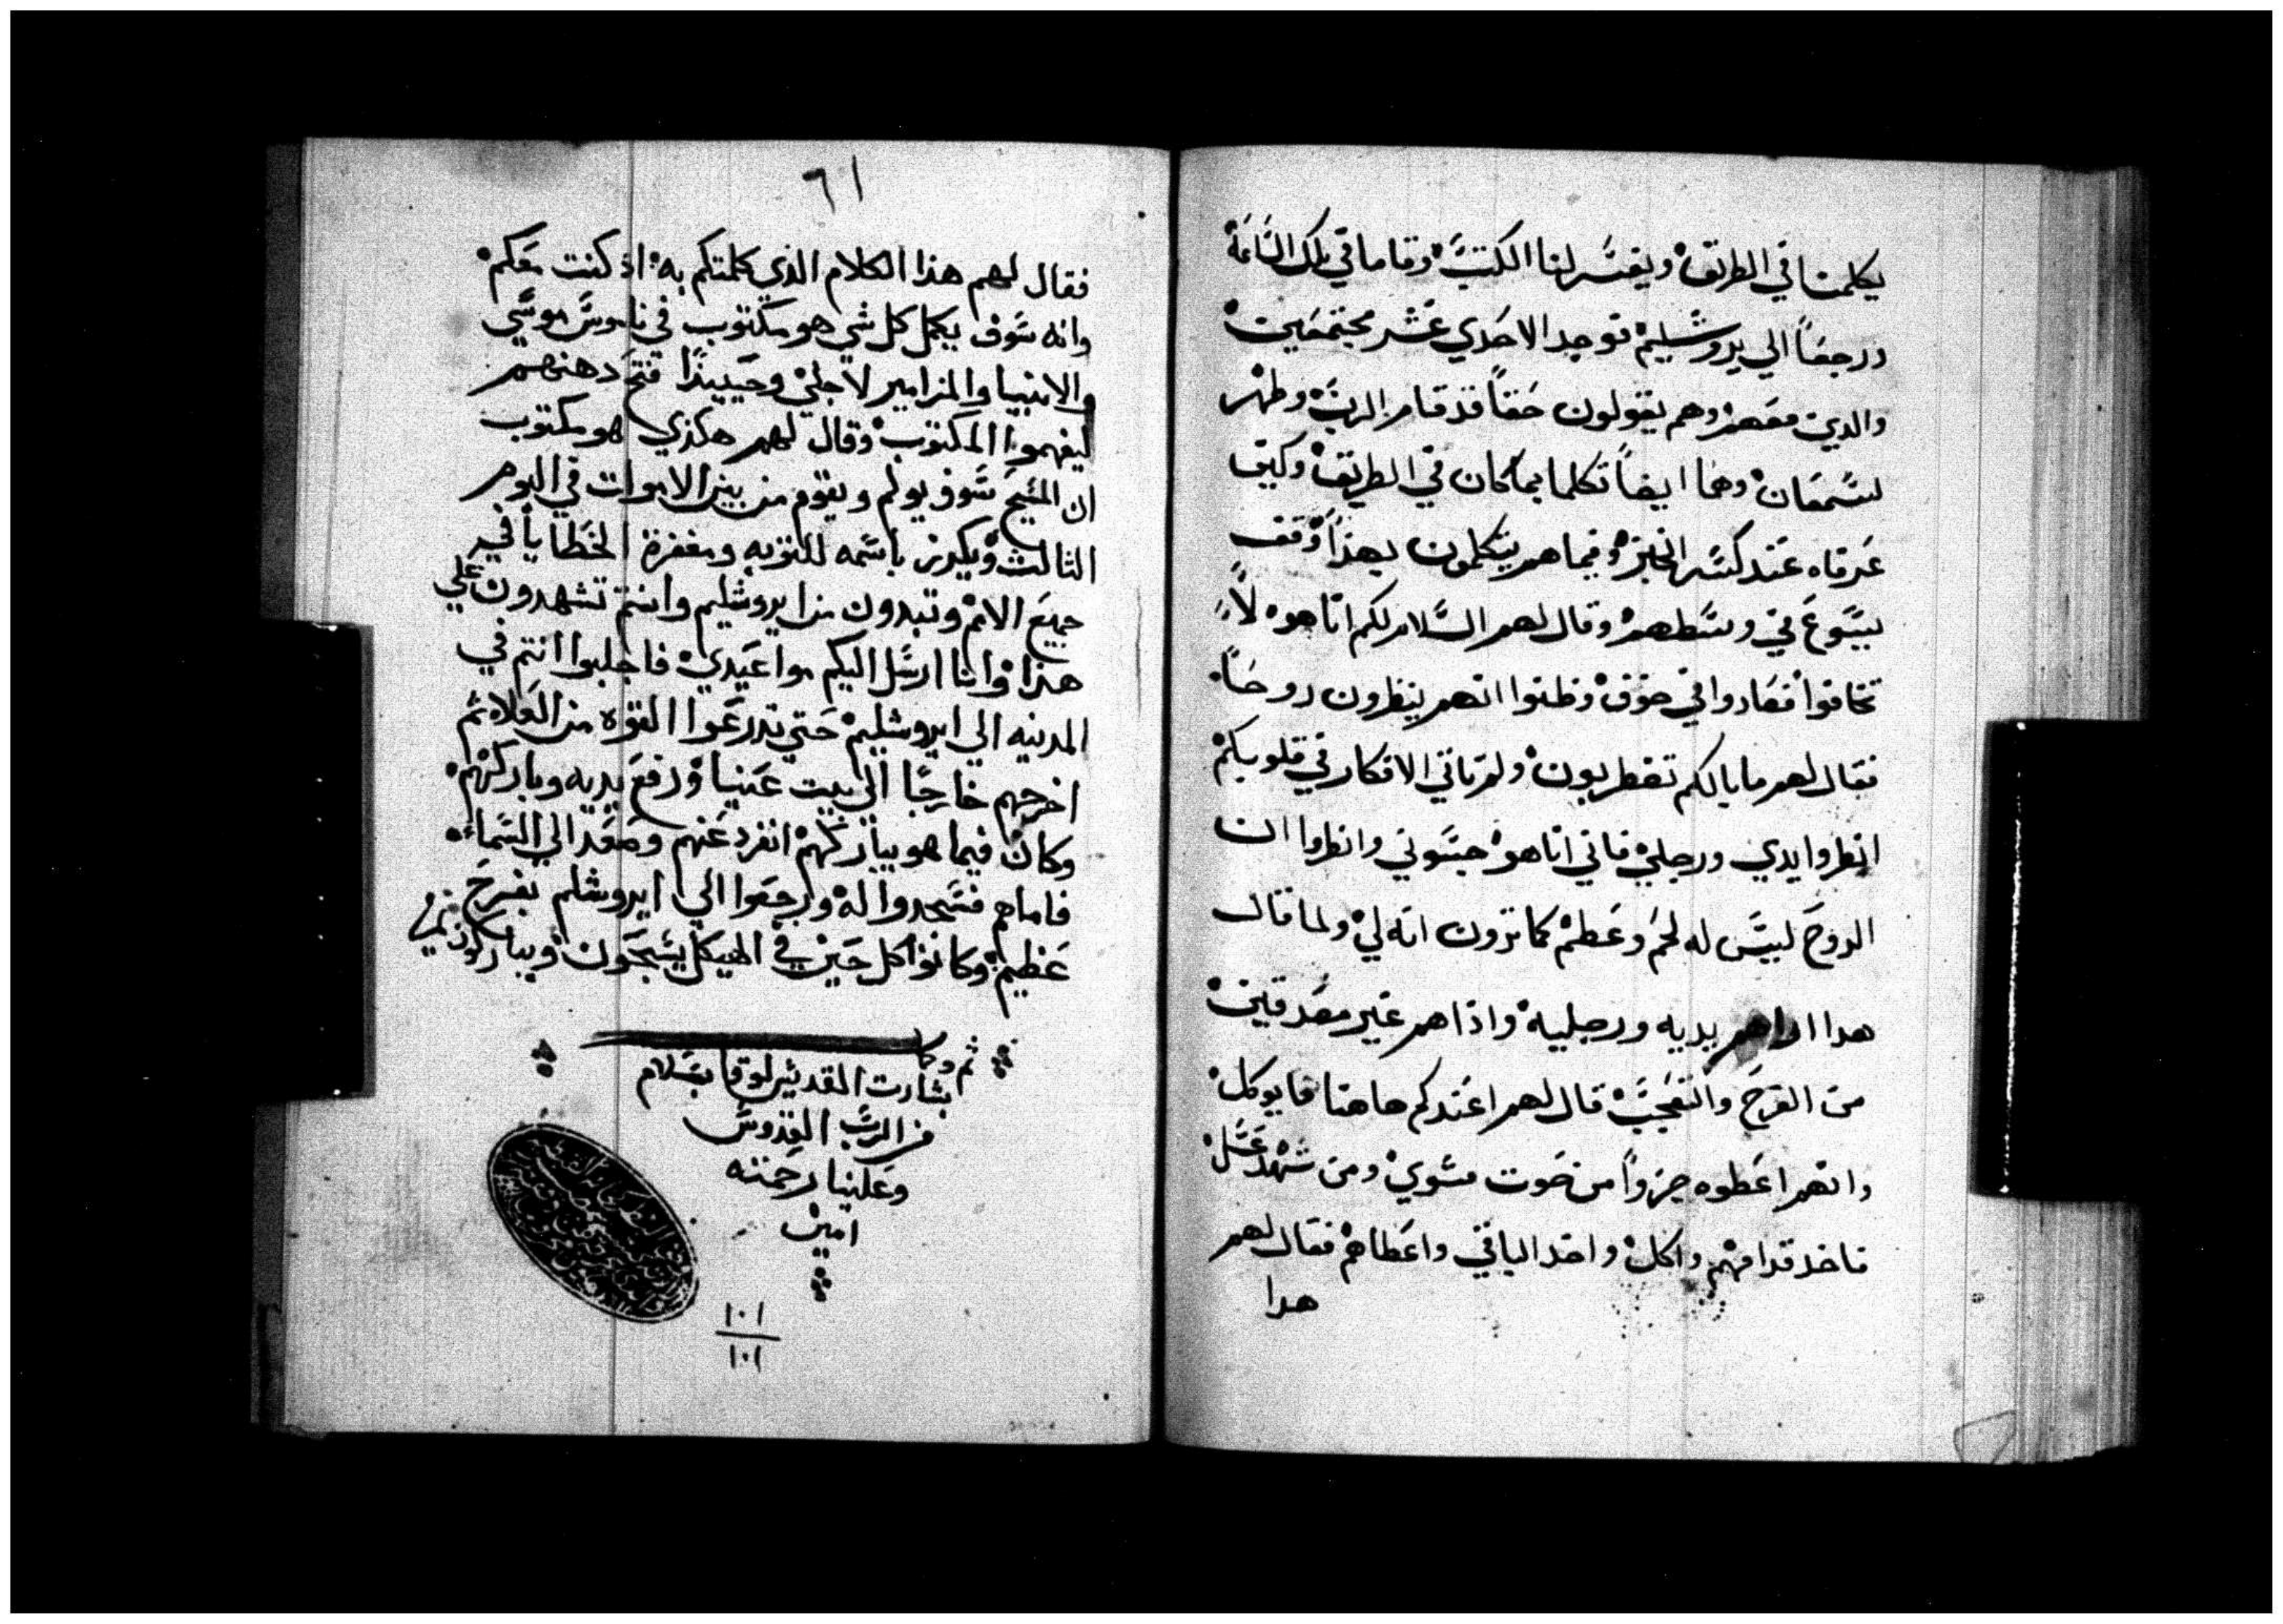 يكلمنا في الطريق ويفسر لنا الكتب وقاما في تلك الساعة
ورجعا الي يروشليم فوجدا الاحدي عشر مجتمعين
والدين معهم وهم يقولون حقاً قد قام الرب وظهر
لسمعان وهما ايضاً تكلما بما كان في الطريق وكيف
عرفاه عند كسر الخبز وفيما هم يتكلمون بهذا وقف
يسوع في وسطهم وقال لهم السلام لكم انا هو لا
تخافوا فصاروا في خوف وظنوا انهم ينظرون روحاً
فقال لهم ما بالكم تضطربون ولم تاتي الافكار في قلوبكم
انظروا يدي ورجلي فاني انا هو جسوني وانظروا ان
الروح ليس له لحم وعظم كما ترون انه لي ولما قال
هدا اراهم يديه ورجليه واذا هم غير مصدقين
من الفرح والتعجب قال لهم اعندكم هاهنا ما يوكل
وانهم اعطوه جزواً من حوت مشوي ومن شهد عسل
فاخد قدامهم واكل واخد الباقي واعطاهم فقال لهم
هدا
٦١
فقال لهم هذا الكلام الذي كلمتكم به اذ كنت معكم
وانه سوف يكمل كل شي هو مكتوب في ناموس موسي
والانبيا والمزامير لاجلي وحينيذا فتح دهنهم
ليفهموا المكتوب وقال لهم هكذي هو مكتوب
ان المسيح سوف يولم ويقوم من بين الاموات في اليوم
الثالث ويكرز باسمه للتوبه ومغفرة الخطايا في
جميع الامم وتبدون من ايروشليم وانتم تشهدون علي
هذا وانا ارسل اليكم مواعيدي فاجلبوا انتم في
المدينه الي ايروشليم حتي تدرعوا القوه من العلا ثم
اخرجهم خارجًا الي بيت عنيا ورفع يديه وباركهم
وكان فيما هو يباركهم انفرد عنهم وصعد الي السماء
فاما هم فسجدوا له ورجعوا الي ايروشلم بفرح
عظيم وكانوا كل حين في الهيكل يسبحون ويباركون
ثم وكل
بشارت القديس لوقا بسلام
من الرب القدوس
وعلينا رحمته
امين
١٠١
١٠١